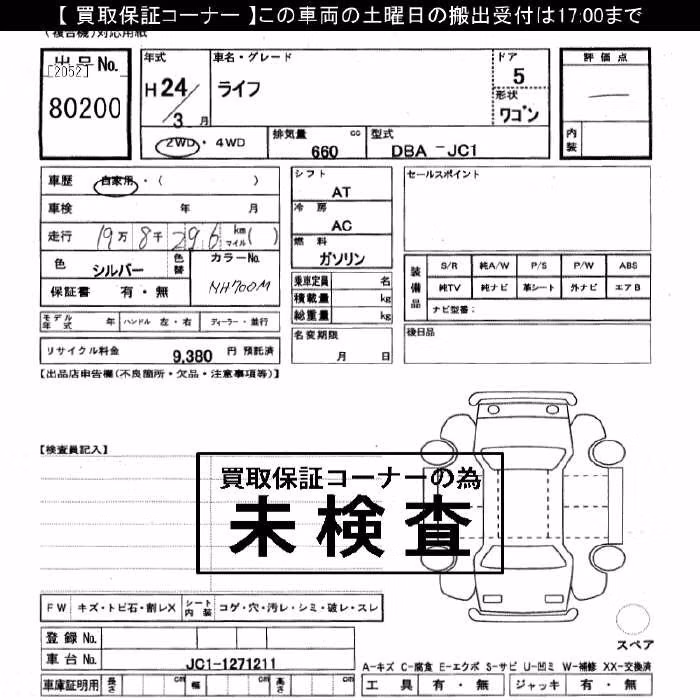 【 買取保証コーナー 】この車両の土曜日の搬出受付は17:00まで
(複合機)対応用紙
出品No.
[2052]
80200
年式
H 24/3 月
車名・グレード
ライフ
ドア
5
形状
ワゴン
評価点
内装
2WD・4WD
排気量 cc
660
型式
DBA -JC1
車歴 自家用・( )
車検 年 月
走行 19万8千296 km マイル( )
色 シルバー
色替
カラーNo.
NH700M
保証書 有・無
モデル年式 年 ハンドル 左・右 ディーラー・並行
リサイクル料金 9,380 円 預託済
シフト
AT
冷房
AC
燃料
ガソリン
乗車定員 名
積載量 kg
総重量 kg
名変期限
月 日
セールスポイント
装備品
S/R 純A/W P/S P/W ABS
純TV 純ナビ 革シート 外ナビ エアB
ナビ型番:
後日品
【出品店申告欄(不良箇所・欠品・注意事項等)】
【検査員記入】
買取保証コーナーの為
未検査
FW キズ・トビ石・割レX シート内装 コゲ・穴・汚レ・シミ・破レ・スレ
スペア
登録No.
車台No. JC1-1271211
車庫証明用 長さ cm 幅 cm 高さ cm
A-キズ C-腐食 E-エクボ S-サビ U-凹ミ W-補修 XX-交換済
工具 有・無 ジャッキ 有・無